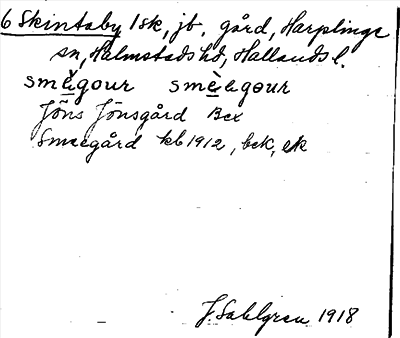 6 Skintaby 1 sk, jb, gård, Harplinge
sn, Halmstads hd, Hallands l.
smègour smèegour
Jöns Jönsgård Bex
Smeegård kb 1912, bck, ek
J. Sahlgren 1918